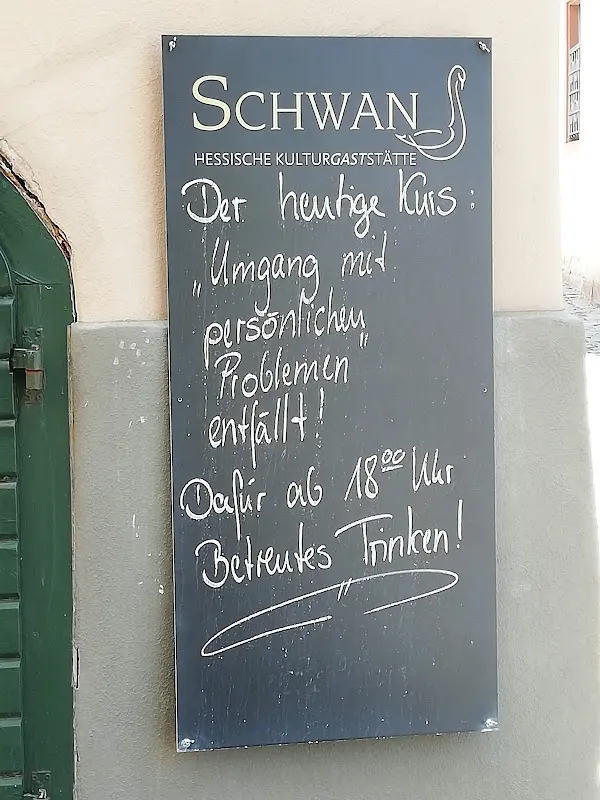 SCHWAN
HESSISCHE KULTURGASTSTÄTTE
Der heutige Kurs:
„Umgang mit
persönlichen
Problemen"
entfällt!
Dafür ab 18⁰⁰ Uhr
Betreutes Trinken!